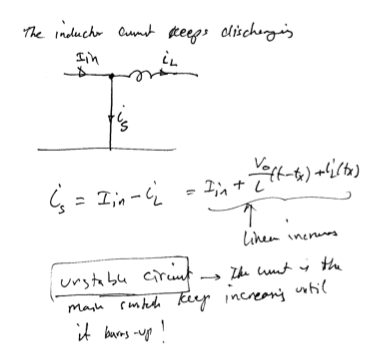 The inductor current keeps discharging
Iin iL
is
is = Iin - iL = Iin + Vo/L (t-tx) + iL(tx)
Linear increases
unstable circuit → The current is the
main switch keep increasing until
it burns-up!